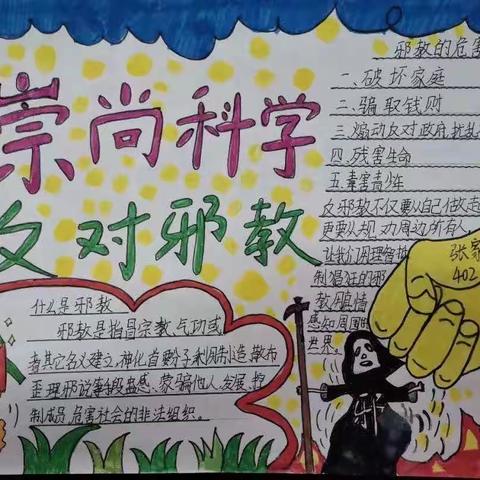 崇尚科学
反对邪教
什么是邪教
邪教是指冒宗教、气功或
者其它名义建立,神化首要分子利用制造、散布
歪理邪说等手段蛊惑、蒙骗他人,发展、控
制成员,危害社会的非法组织。
邪教的危害
一、破坏家庭
二、骗取钱财
三、煽动反对政府,扰乱
四、残害生命
五、毒害青少年
反邪教不仅要从自己做起
更要从规劝周边所有人
让我们用理智
制猖狂的邪
教,用真情
感知周围的
世界。
张家
402
邪